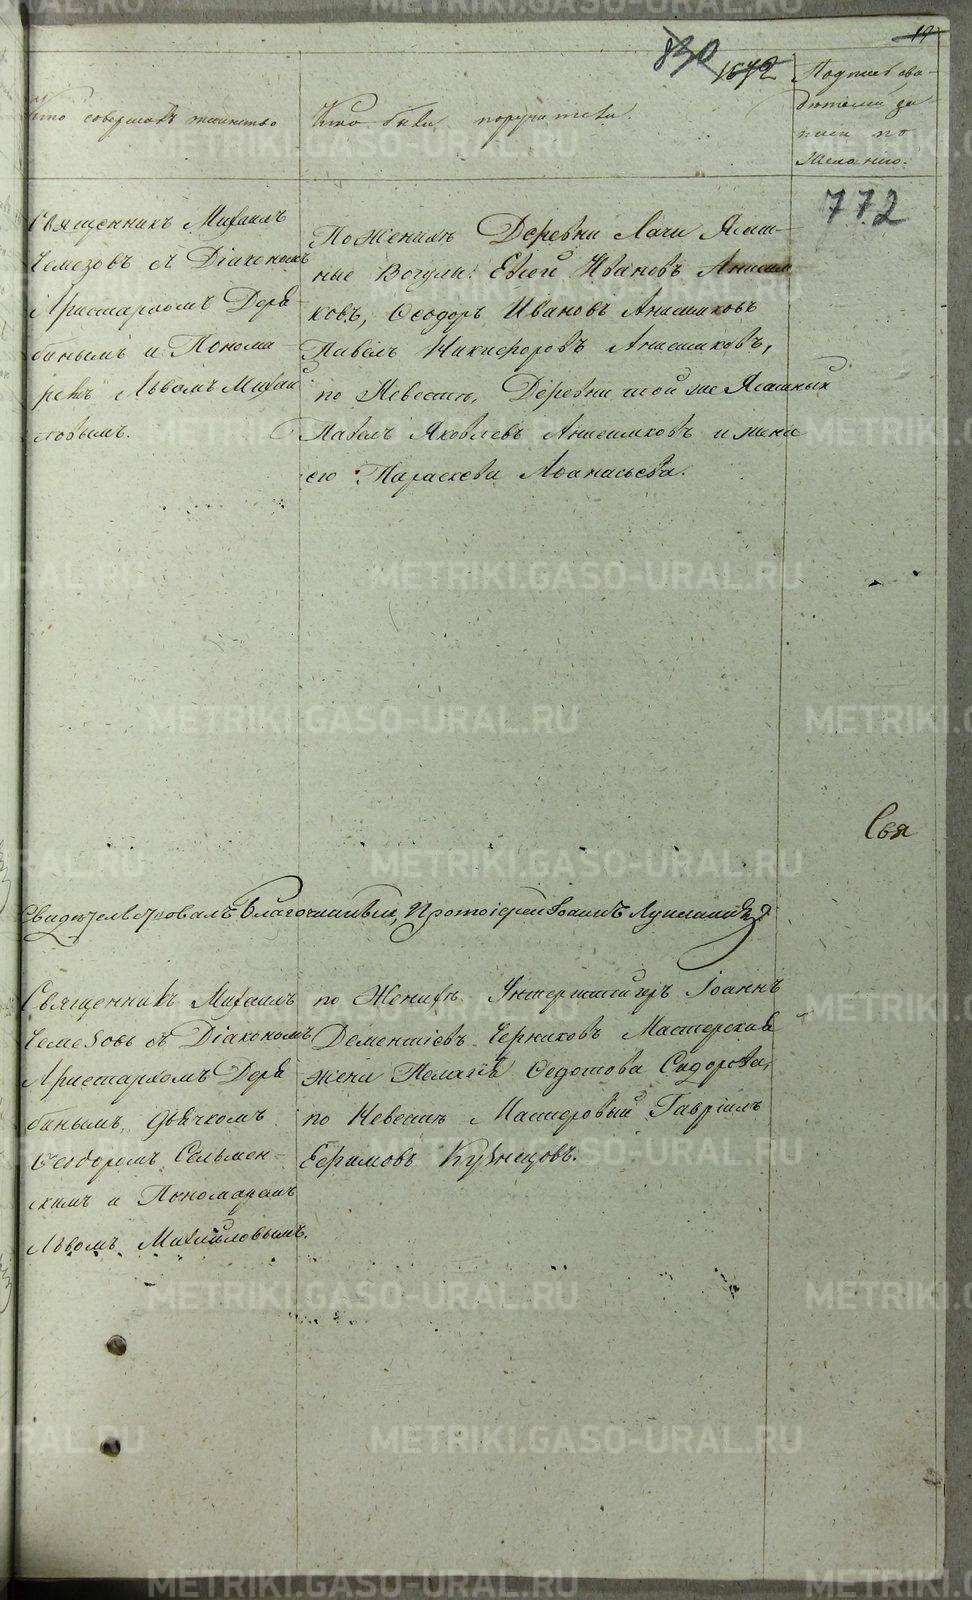 19
830
1642
Кто совершалъ таинство
Кто были поручители.
Подпись сви-
дѣтелей за-
писи по
желанію.
772
Священникъ Михаилъ
Чемезовъ съ Діакономъ
Аристархомъ Деря
бинымъ и Понома
ремъ Львомъ Михай
ловымъ.
По Женихѣ Деревни Лачи Ясаш-
ные Вогулы: Евсей Ивановъ Анисим
ковъ, Ѳеодоръ Ивановъ Анисимковъ
Павелъ Никифоровъ Анисимковъ,
по Невестѣ, Деревни той же Ясашный
Павелъ Яковлевъ Анисимковъ и жена
его Параскева Аѳанасьева.
Свя
Свидѣтельствовалъ Благочинный, Протоіерей Іоаннъ
Священникъ Михаилъ
Чемезовъ съ Діакономъ
Аристархомъ Деря
бинымъ, дьячкомъ
Ѳеодоромъ Сельмен-
скимъ и Пономаремъ
Львомъ Михайловымъ.
по Женихѣ Унтершейгеръ Іоаннъ
Дементіевъ Черниховъ Мастерская
жена Пелагія Ѳедотова Сидорова,
по Невестѣ Мастеровый Гавріилъ
Ефимовъ Кузнецовъ.
METRIKI.GASO-URAL.RU